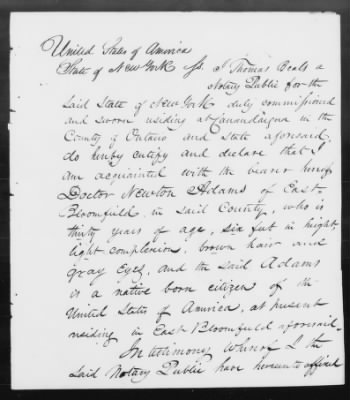 United States of America
State of New York Ss. I Thomas Beals a
Notary Public for the
said State of New York duly commissioned
and sworn residing at Canandaigua in the
County of Ontario and State aforesaid,
do hereby certify and declare that I
am acquainted with the bearer hereof
Doctor Newton Adams of East
Bloomfield in said County, who is
thirty years of age, six feet in hight,
light complexion, brown hair and
gray Eyes, and the said Adams
is a native born citizen of the
United States of America, at present
residing in East Bloomfield aforesaid.
In testimony whereof I the
said Notary Public have hereunto affixed